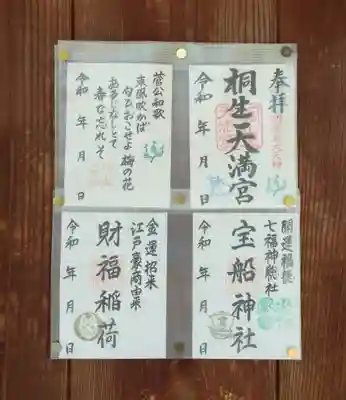 奉拝
桐生天満宮
令和 年 月 日
菅公和歌
東風吹かば
匂ひおこせよ 梅の花
あるじなしとて
春な忘れそ
令和 年 月 日
開運福槌
七福神殿社
宝船神社
令和 年 月 日
金運招来
江戸豪商由来
財福稲荷
令和 年 月 日